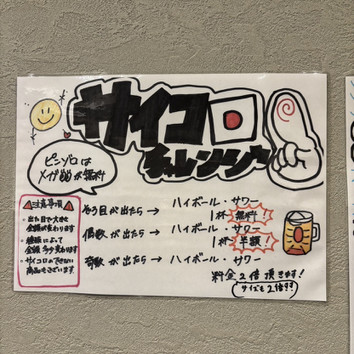 サイコロ
チャレンジ
ピンゾロは
メガ盛が無料
注意事項
・出た目で大きさ
金額が変わります
・種類によって
金額多少変わります
・サイコロのできない
商品もございます
ぞろ目が出たら → ハイボール・サワー
1杯 無料
偶数が出たら → ハイボール・サワー
1杯 半額
奇数が出たら → ハイボール・サワー
料金2倍頂きます!
サイズも2倍です